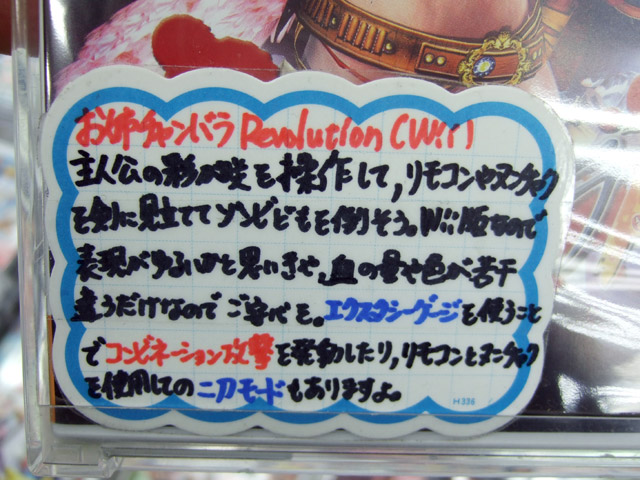 お姉チャンバラ Revolution (Wii)
主人公の彩か咲を操作して,リモコンやヌンチャク
を剣に見立ててゾンビどもを倒そう。Wii版なので
表現がゆるいかと思いきや、血の量や色が若干
違うだけなのでご安心を。エクスタシーゲージを使うこと
でコンビネーション攻撃を発動したり,リモコンとヌンチャク
を使用しての二刀モードもありますよ。
H336